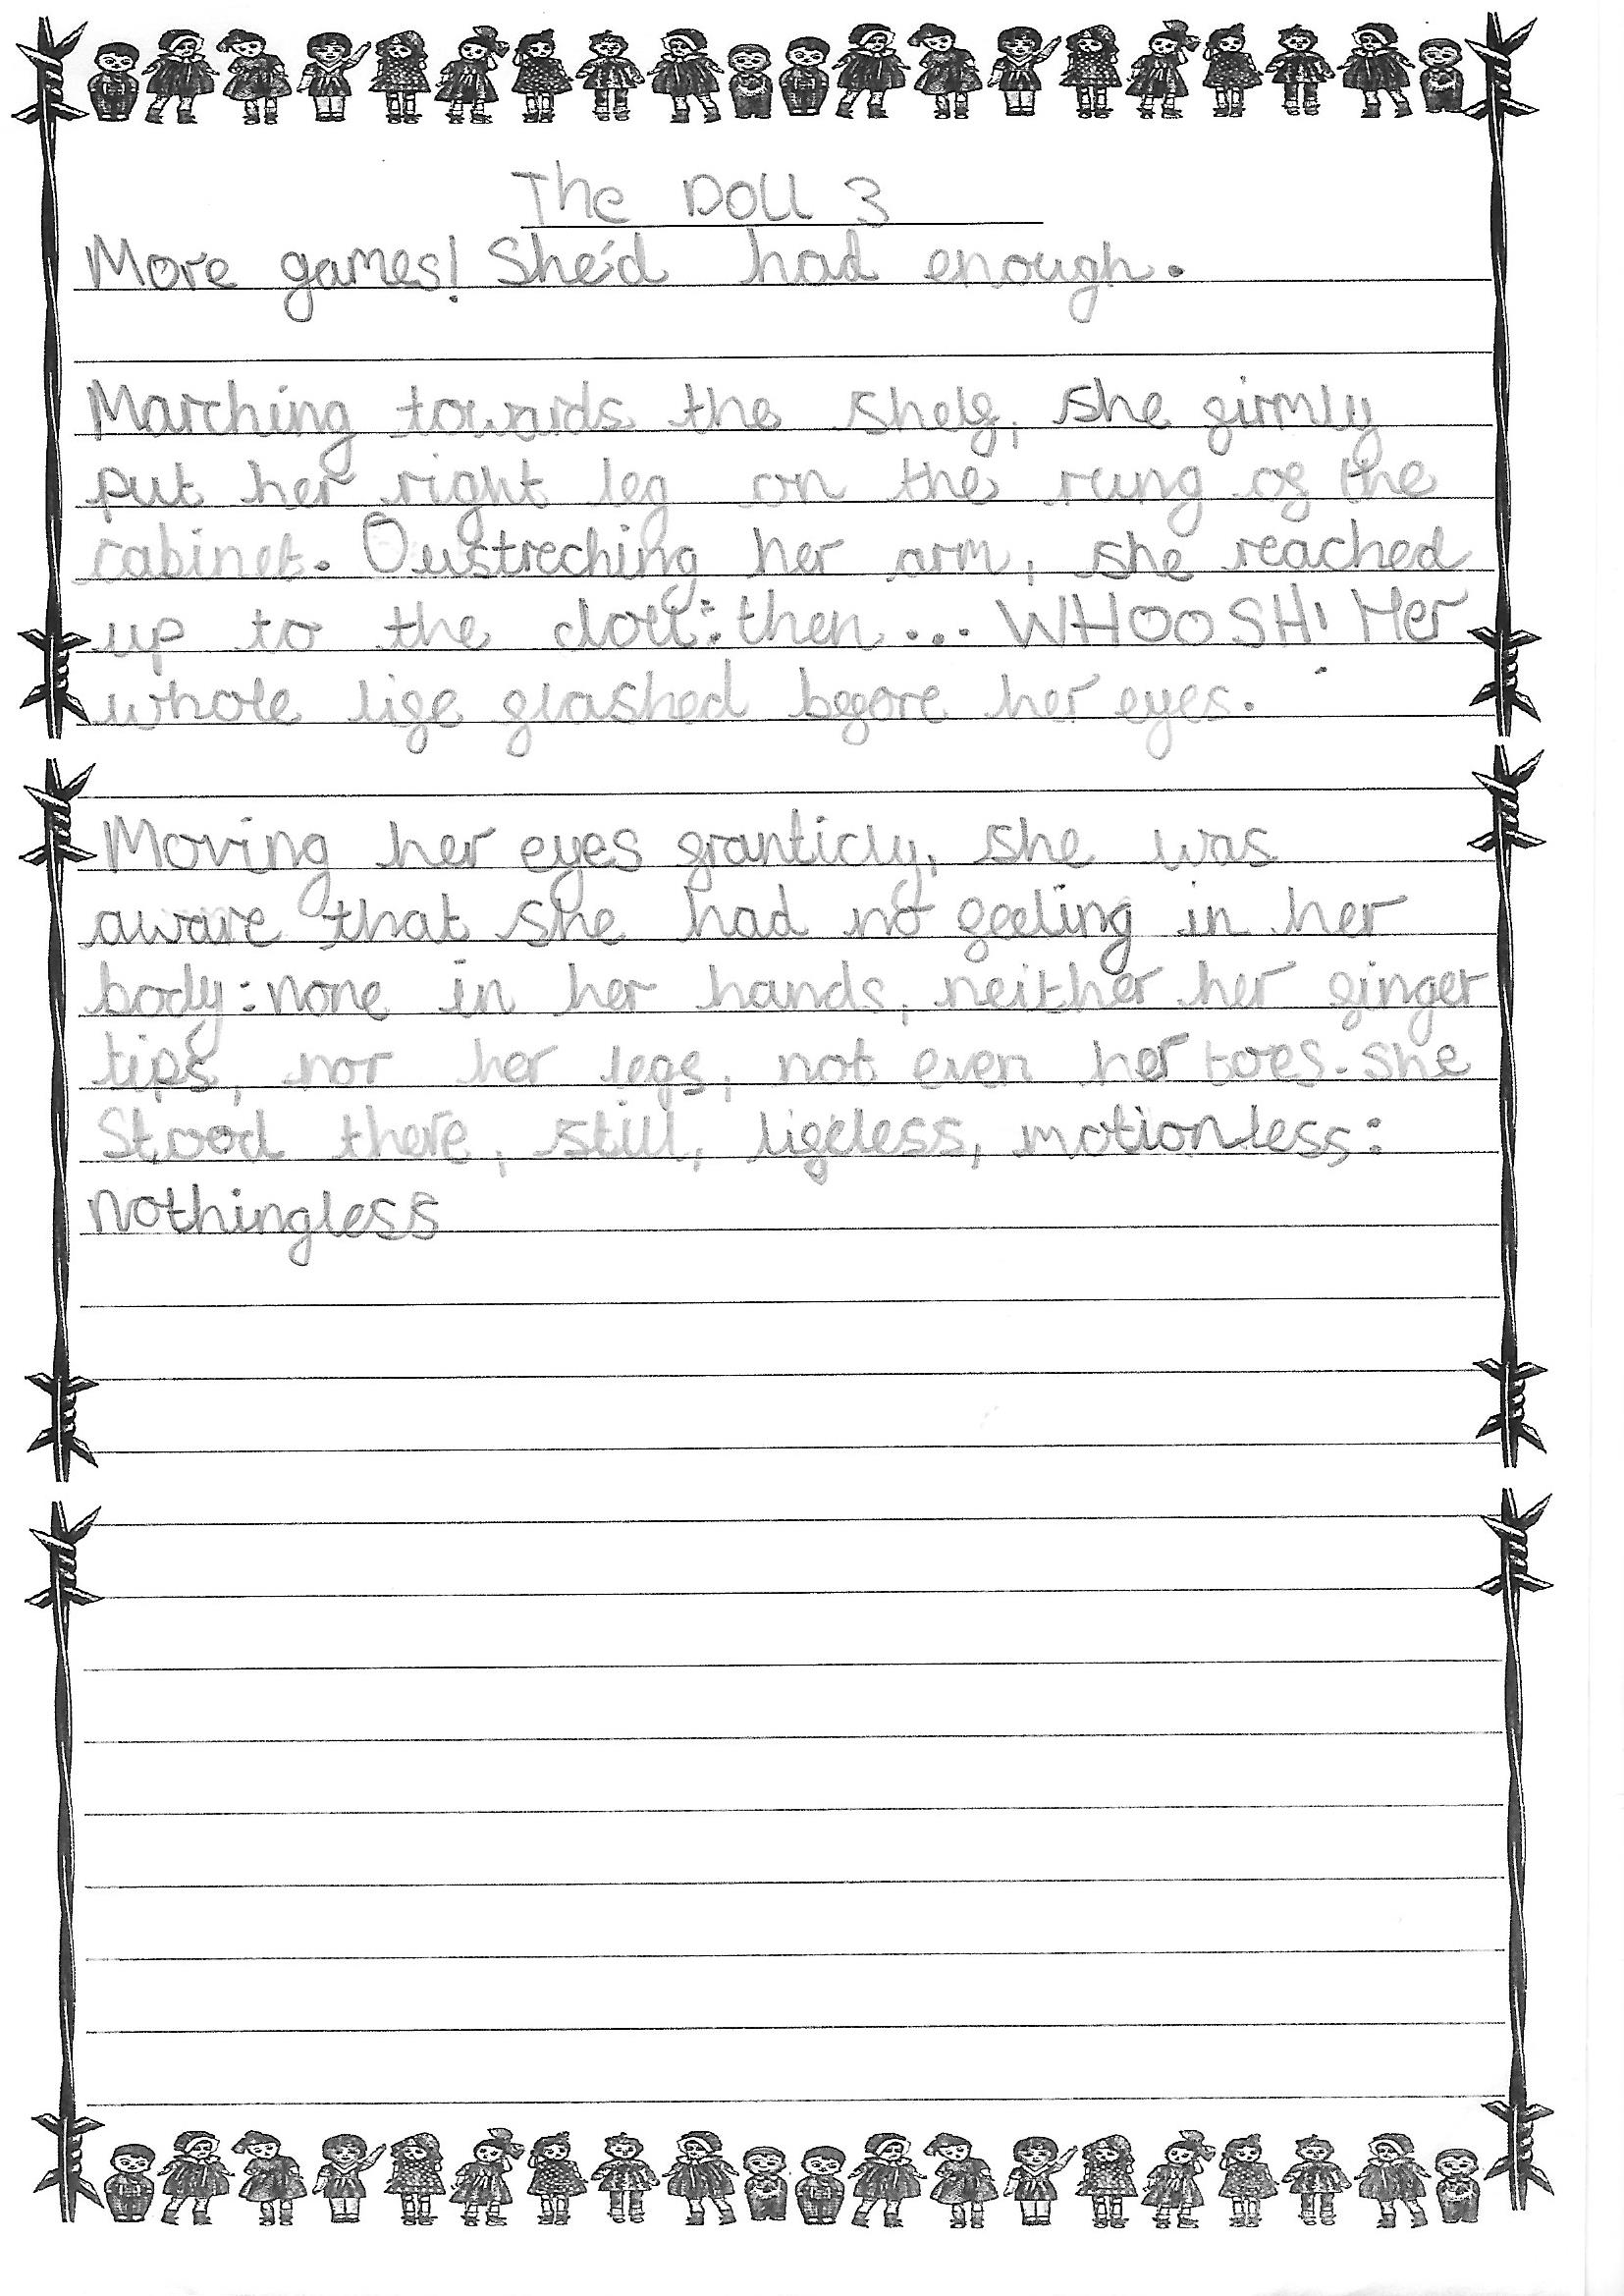 The Doll 3
More games! She'd had enough.
Marching towards the shelf, she firmly
put her right leg on the rung of the
cabinet. Oustreching her arm, she reached
up to the doll: then... WHOOSH! Her
whole life flashed before her eyes.
Moving her eyes franticly, she was
aware that she had no feeling in her
body: none in her hands, neither her finger
tips, nor her legs, not even her toes. She
stood there, still, lifeless, motionless:
nothingless